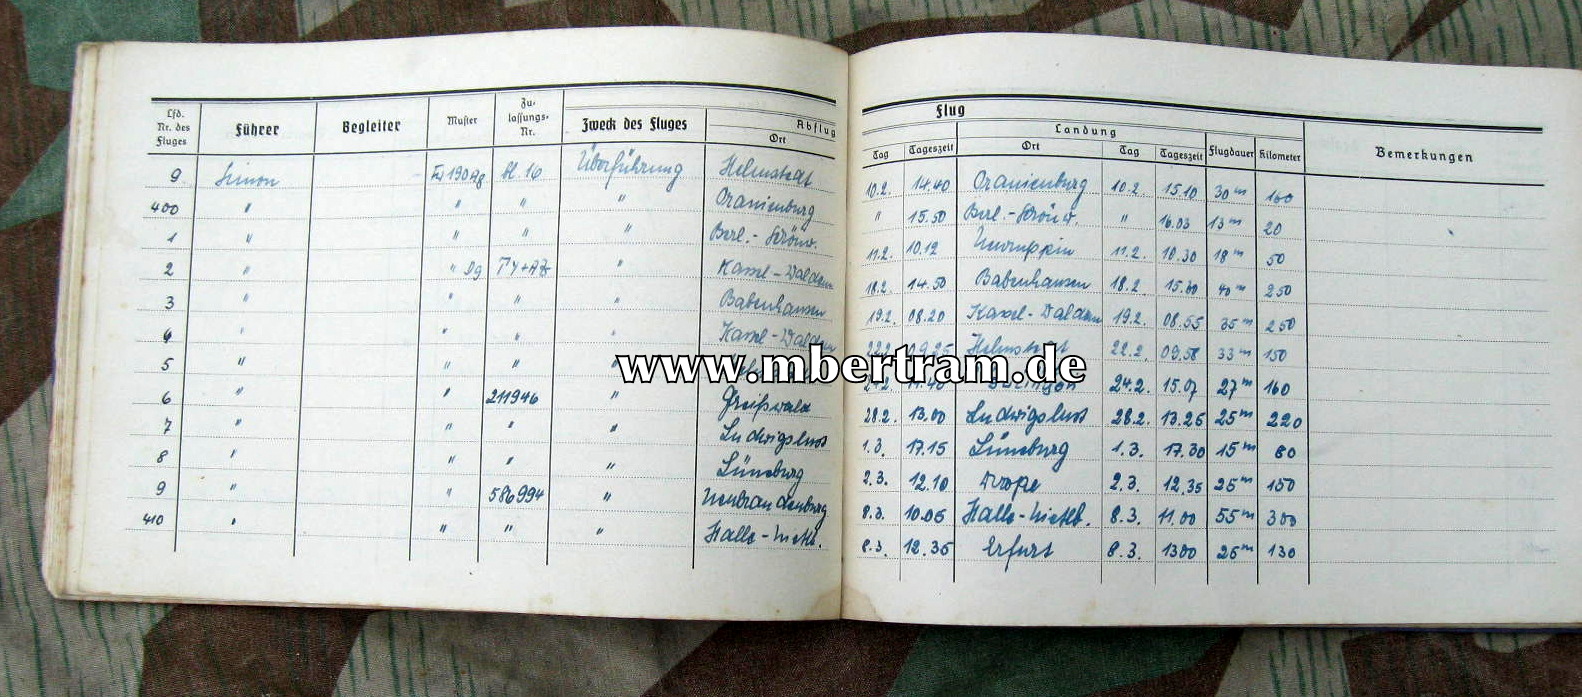 Flug
Lfd. Nr. des Fluges Führer Begleiter Muster Zu-lassungs-Nr. Zweck des Fluges Abflug Ort Tag Tageszeit Landung Ort Tag Tageszeit Flugdauer Kilometer Bemerkungen
9 Simon Überführung Helmstedt 10.2. 14.40 Oranienburg 10.2. 15.10 30 m 160
400 " " " " Oranienburg " 15.50 Berl.-Schönw. " 16.03 13 m 20
1 " " " " Berl.-Schönw. 11.2. 10.12 11.2. 10.30 18 m 50
2 " " " Kassel-Waldau 18.2. 14.50 Babenhausen 18.2. 40 m 250
3 " " " " Babenhausen 19.2. 08.20 Kassel-Waldau 19.2. 08.55 35 m 250
4 " " " " Kassel-Waldau 22.2. 09.25 Helmstedt 22.2. 09.58 33 m 150
5 " " " " 24.2. 15.07 27 m 160
6 " " 211946 " Greifswald 28.2. 13.00 Ludwigslust 28.2. 13.25 25 m 220
7 " " " " Ludwigslust 1.3. 17.15 Lüneburg 1.3. 17.30 15 m 80
8 " " " " Lüneburg 2.3. 12.10 2.3. 12.35 25 m 150
9 " " 586994 " Neubrandenburg 8.3. 10.05 Halle-Nietlb. 8.3. 11.00 55 m 300
410 " " " " Halle-Nietlb. 8.3. 12.35 Erfurt 8.3. 1300 25 m 130
www.mbertram.de